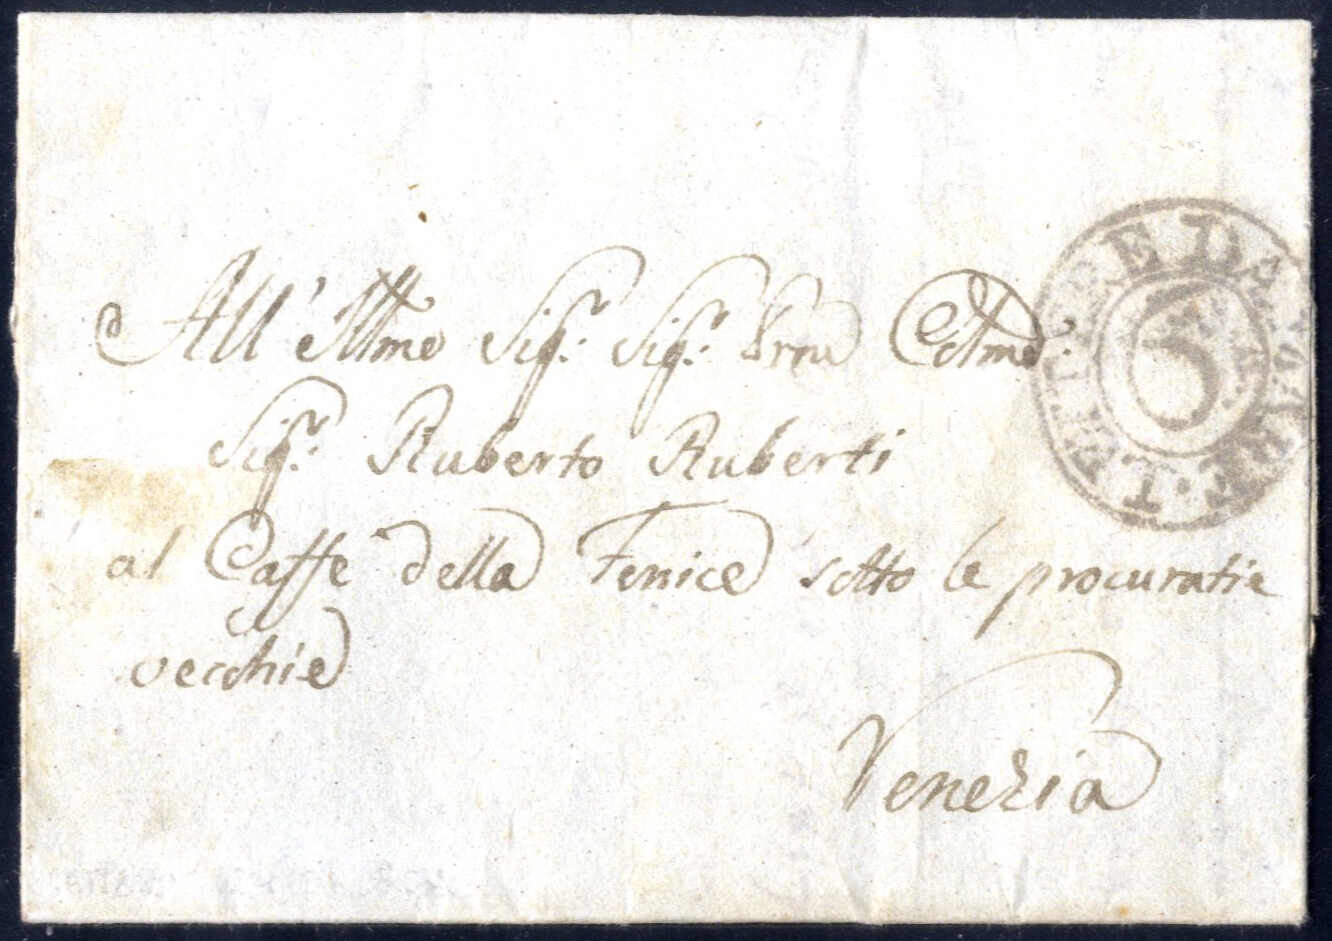 All' Illmo Sigr. Sigr. Pron Colmo.
Sigr. Ruberto Ruberti
al Caffe della Fenice sotto le procuratie
vecchie
Venezia
LETTERE DA
5